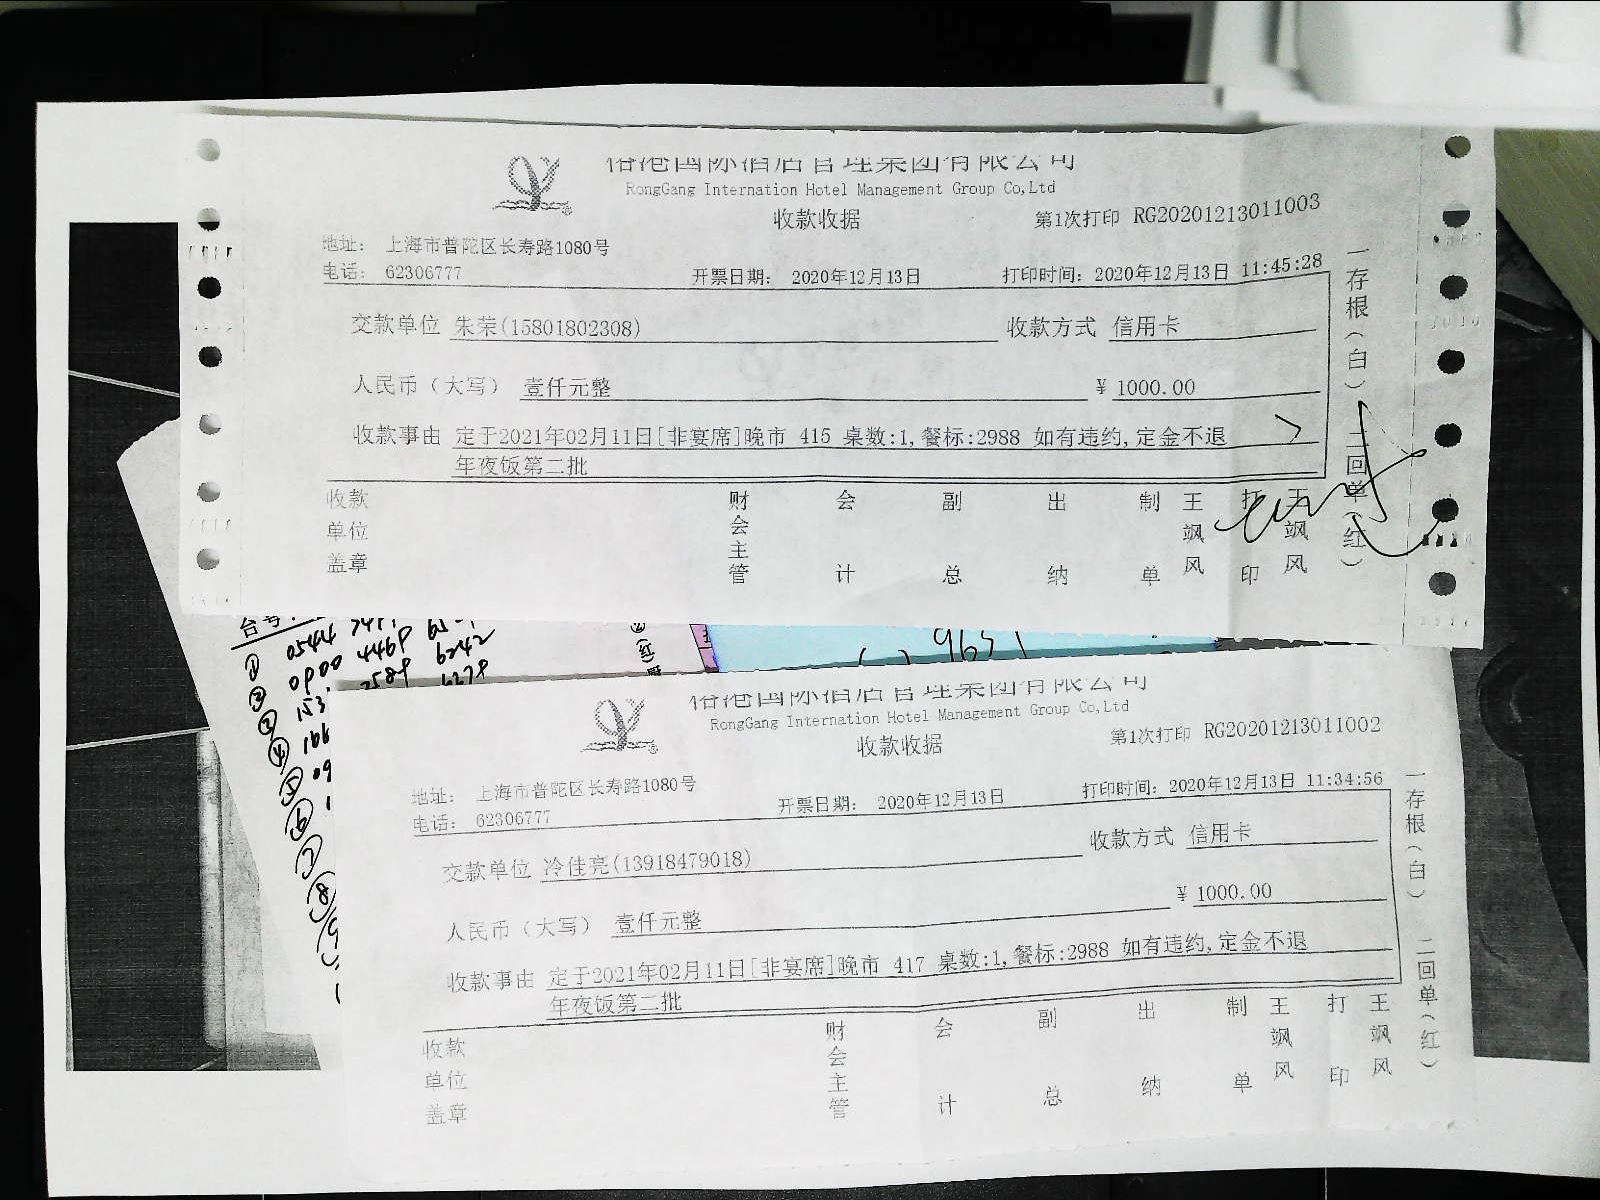 俗港国际酒店管理集团有限公司
RongGang Internation Hotel Management Group Co,Ltd
收款收据
第1次打印 RG20201213011003
地址： 上海市普陀区长寿路1080号
电话： 62306777
开票日期： 2020年12月13日
打印时间：2020年12月13日 11:45:28
交款单位 朱荣(15801802308)
收款方式 信用卡
人民币（大写） 壹仟元整
¥ 1000.00
收款事由 定于2021年02月11日[非宴席]晚市 415 桌数:1,餐标:2988 如有违约,定金不退
年夜饭第二批
收款单位盖章
财会主管
会计
副总
出纳
制单
王飒风
打印
王飒风
一存根（白）
二回单（红）
台号
① 0544
0900 4469 6242
153
166
09
9651
(红)
俗港国际酒店管理集团有限公司
RongGang Internation Hotel Management Group Co,Ltd
收款收据
第1次打印 RG20201213011002
地址： 上海市普陀区长寿路1080号
电话： 62306777
开票日期： 2020年12月13日
打印时间：2020年12月13日 11:34:56
交款单位 冷佳亮(13918479018)
收款方式 信用卡
人民币（大写） 壹仟元整
¥ 1000.00
收款事由 定于2021年02月11日[非宴席]晚市 417 桌数:1,餐标:2988 如有违约,定金不退
年夜饭第二批
收款单位盖章
财会主管
会计
副总
出纳
制单
王飒风
打印
王飒风
一存根（白）
二回单（红）